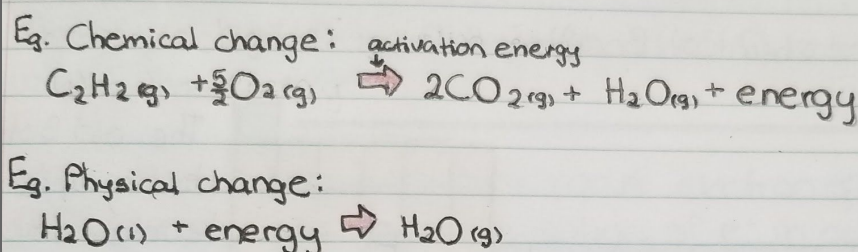 Eg. Chemical change: activation energy
C₂H₂(g) + 5/2 O₂(g) ⇒ 2CO₂(g) + H₂O(g) + energy
Eg. Physical change:
H₂O(l) + energy ⇒ H₂O(g)